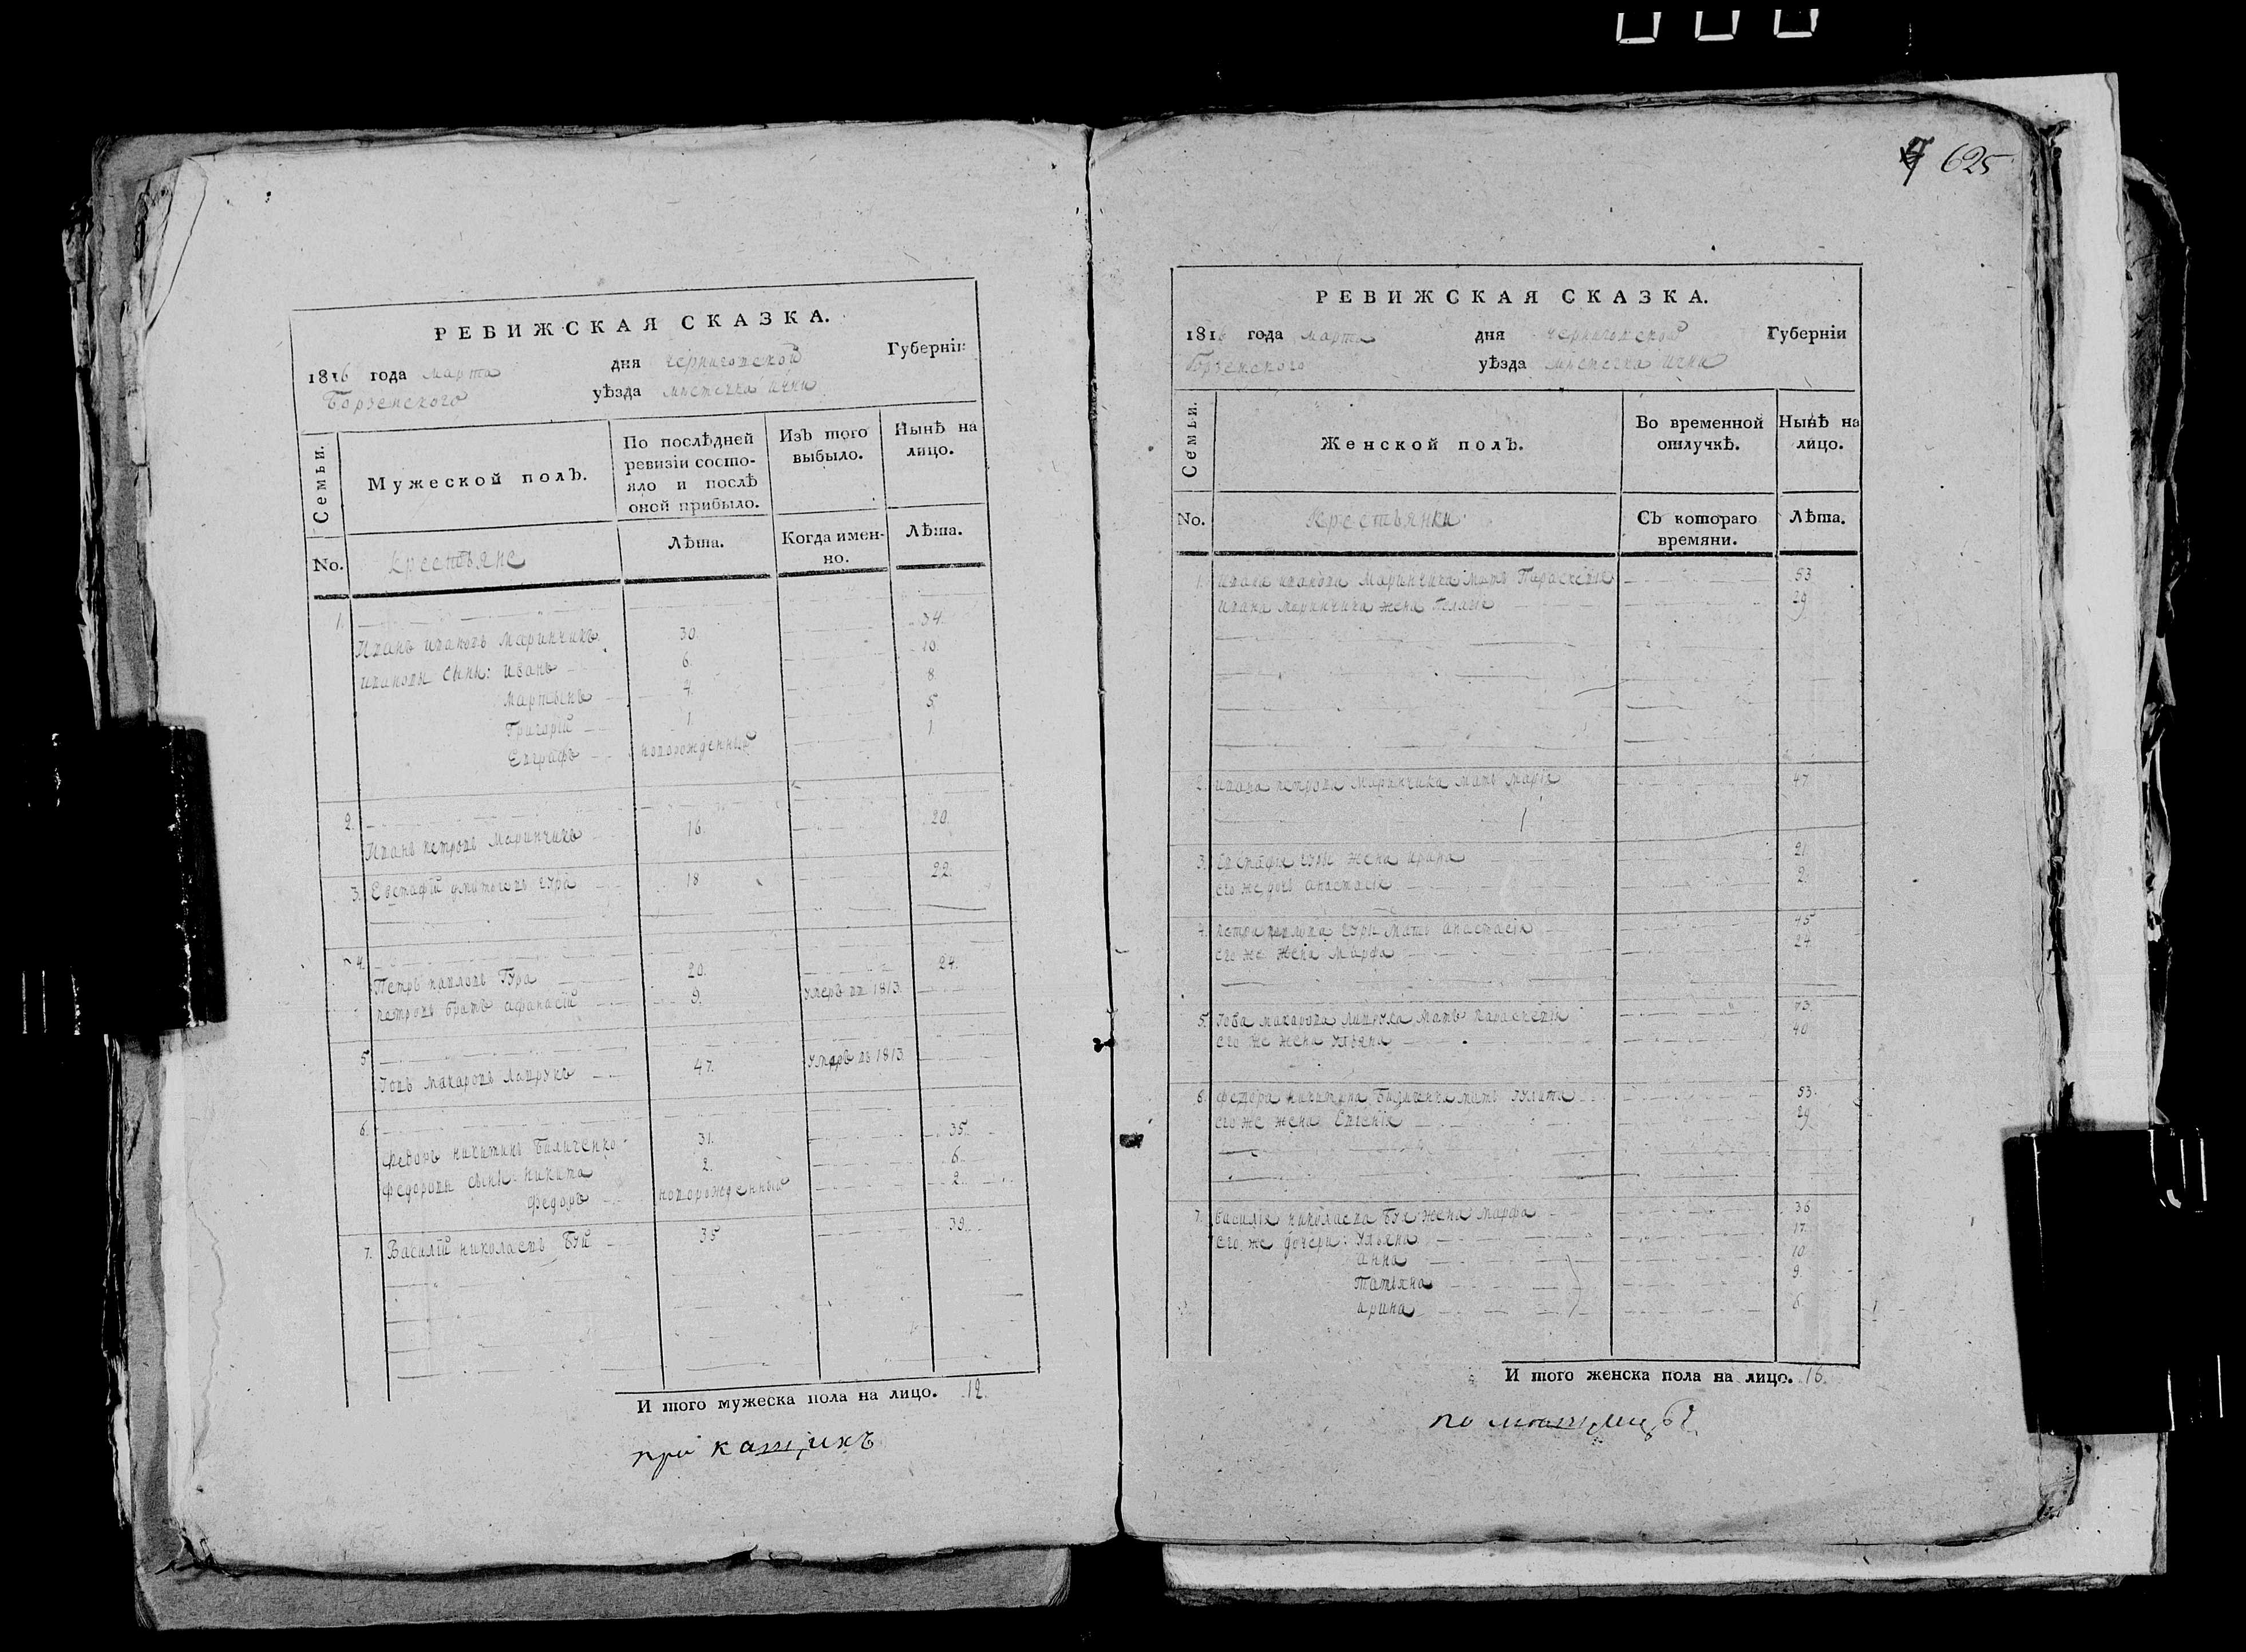 625
РЕВИЖСКАЯ СКАЗКА.
1816 года марта дня черниговской Губернїи
Борзенского уѣзда мѣстечка ични
Семьи.
Мужеской полъ.
По послѣдней ревизїи состояло и послѣ оной прибыло.
Изъ того выбыло.
Нынѣ на лицо.
No. крестьяне
Лѣта.
Когда именно.
Лѣта.
1.
Иванъ ивановъ Маринчикъ 30. 34.
ивановы сыны: иванъ 6. 10.
мартынъ 4. 8
Григорїй 1. 5.
Евграфъ новорожденный 1
2.
Иванъ петровъ Маринчикъ 16. 20.
3. Евстафїй гура 18 22.
4.
Петръ павловъ Гура 20. 24.
петровъ братъ афанасїй 9. умеръ въ 1813.
5
Iовъ макаровъ 47. умеръ въ 1813
6.
федоръ никитинъ Биличенко 31. 35.
федоровы сыны. никита 2. 6.
федоръ новорожденный 2.
7. Василїй николаевъ Буй 35 39.
И того мужеска пола на лицо. 12.
РЕВИЖСКАЯ СКАЗКА.
1816 года марта дня черниговской Губернїи
Борзенского уѣзда мѣстечка ични
Семьи.
Женской полъ.
Во временной отлучкѣ.
Нынѣ на лицо.
No. Крестьянки
Съ котораго времяни.
Лѣта.
1. ивана иванова Маринчика мать Параскевїя 53.
ивана маринчика жена Пелагїя 29.
2. ивана петрова Маринчика мать марїя 47
3. Евстафїя гуры жена ирина 21
его же дочь анастасїя 2.
4. петра павлова гуры мать анастасїя 45
его же жена Марфа 24.
5. Iова макарова мать параскевїя 73.
его же жена ульяна 40
6. федора никитина Биличенка мать iулита 53.
его же жена Евгенїя 29.
7. василїя николаева Буя жена марфа 36
его же дочери: ульяна 17.
анна 10
татьяна 9.
арина 6.
И того женска пола на лицо. 16.